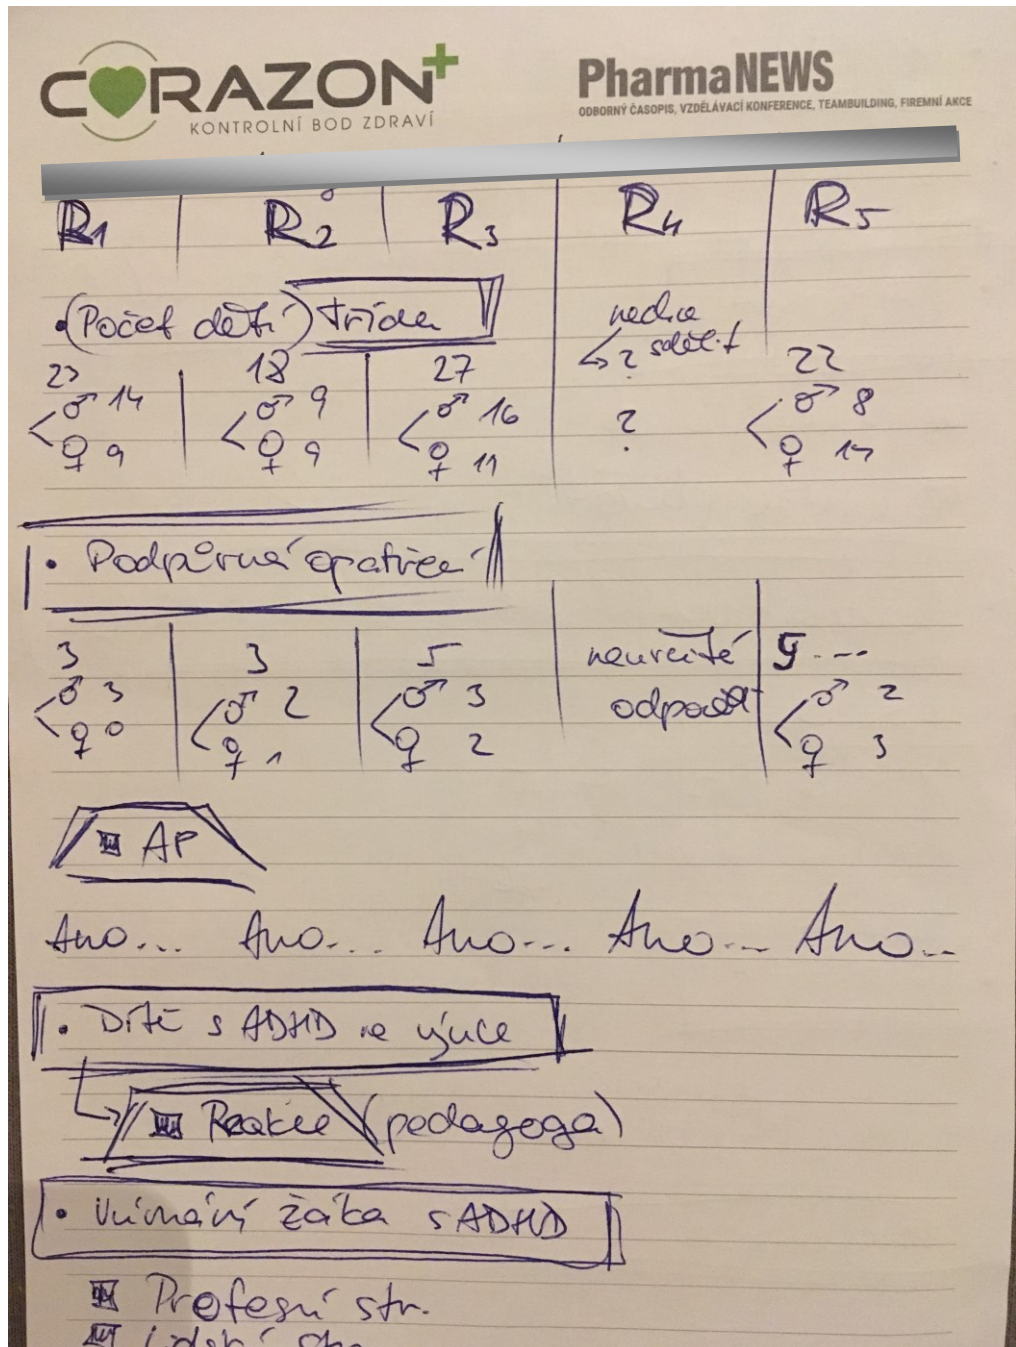 CORAZON+
KONTROLNÍ BOD ZDRAVÍ
PharmaNEWS
ODBORNÝ ČASOPIS, VZDĚLÁVACÍ KONFERENCE, TEAMBUILDING, FIREMNÍ AKCE
R1 R2 R3 R4 R5
• (Počet dětí) třída
nechce
sdělit
23 18 27 ? 22
♂ 14 ♂ 9 ♂ 16 ? ♂ 8
♀ 9 ♀ 9 ♀ 11 ♀ 14
• Podpůrná opatření
3 3 5 neurčité 5...
♂ 3 ♂ 2 ♂ 3 odpověď ♂ 2
♀ 0 ♀ 1 ♀ 2 ♀ 3
AP
Ano... Ano... Ano... Ano... Ano...
• Dítě s ADHD ve výuce
Reakce (pedagoga)
• Vnímání žáka s ADHD
Profesní str.